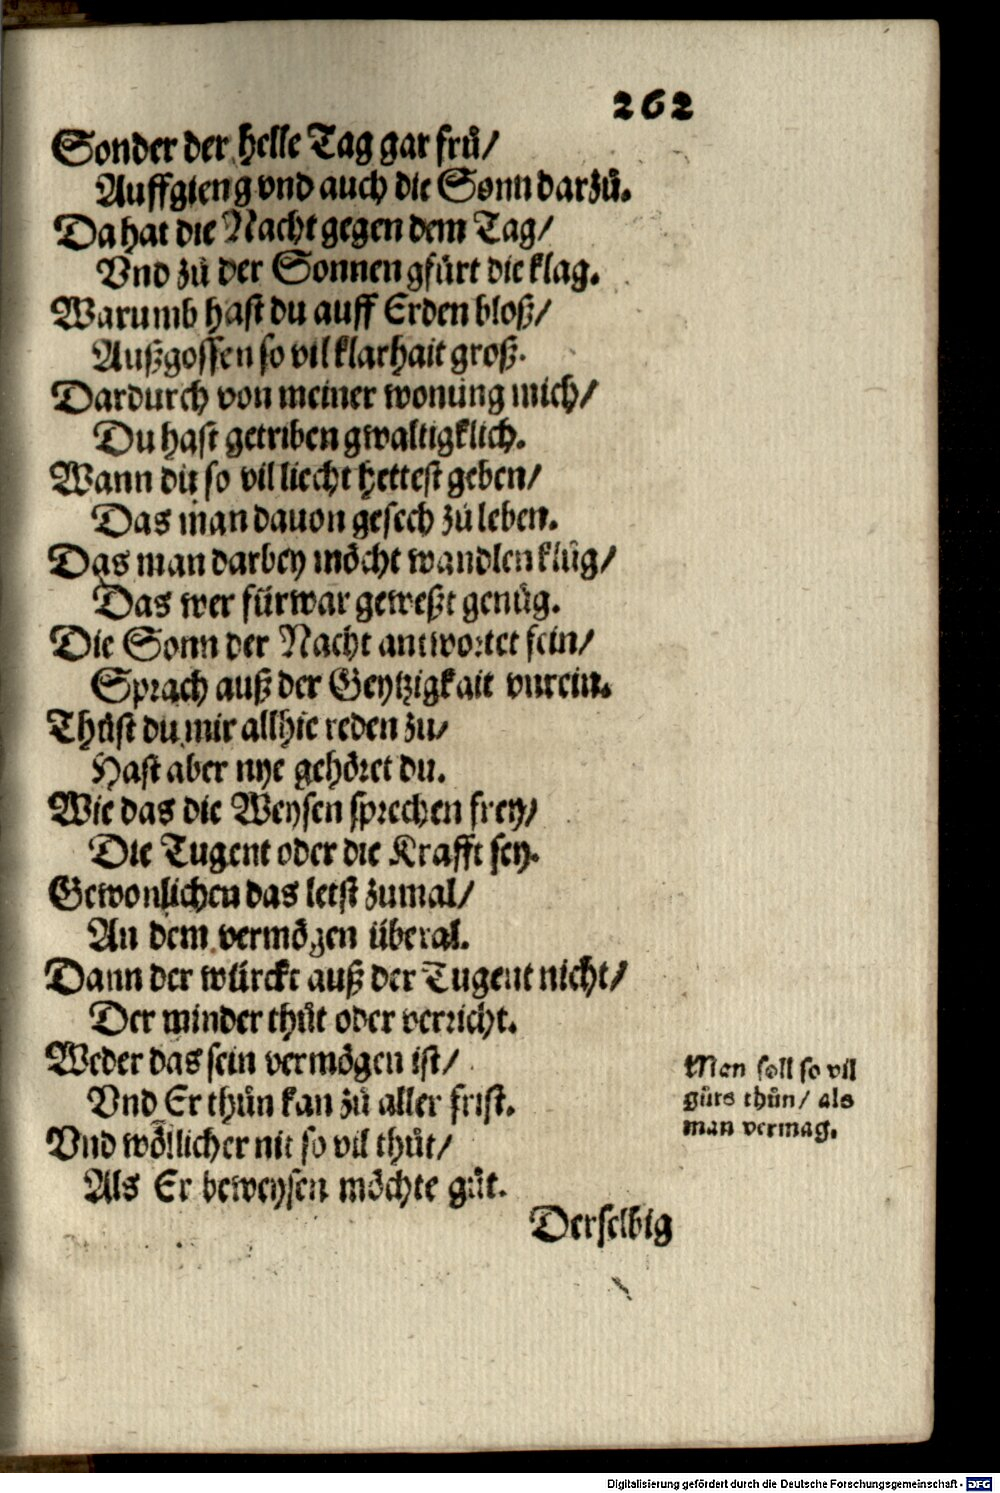 262
Sonder der helle Tag gar frů/
Auffgieng vnd auch die Sonn darzů.
Da hat die Nacht gegen dem Tag/
Vnd zů der Sonnen gfürt die klag.
Warumb hast du auff Erden bloß/
Außgossen so vil klarhait groß.
Dardurch von meiner wonung mich/
Du hast getriben gwaltigklich.
Wann du so vil liecht hettest geben/
Das man dauon gesech zů leben.
Das man darbey möcht wandlen klůg/
Das wer fürwar geweßt genůg.
Die Sonn der Nacht antwortet fein/
Sprach auß der Geytzigkait vnrein.
Thůst du mir allhie reden zu/
Hast aber nye gehöret du.
Wie das die Weysen sprechen frey/
Die Tugent oder die Krafft sey.
Gewonlichen das letst zumal/
An dem vermögen überal.
Dann der würckt auß der Tugent nicht/
Der minder thůt oder verricht.
Weder das sein vermögen ist/
Vnd Er thůn kan zů aller frist.
Vnd wöllicher nit so vil thůt/
Als Er beweysen möchte gůt.
Man soll so vil
gůts thůn/ als
man vermag.
Derselbig
Digitalisierung gefördert durch die Deutsche Forschungsgemeinschaft - DFG